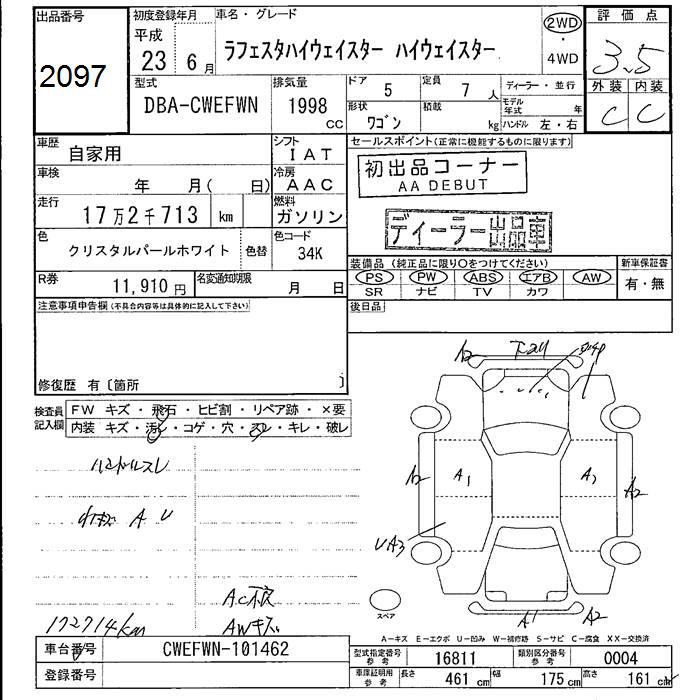 出品番号
2097
初度登録年月
平成
23 6月
車名・グレード
ラフェスタハイウェイスター ハイウェイスター
2WD
・
4WD
評価点
3.5
外装 内装
C C
型式
DBA-CWEFWN
排気量
1998
CC
ドア
5
定員
7 人
形状
ワゴン
積載
kg
ディーラー・並行
モデル年式 年
ハンドル 左・右
車歴
自家用
シフト
IAT
車検
年 月( 日)
冷房
AAC
走行
17万2千713 km
燃料
ガソリン
色
クリスタルパールホワイト
色替
色コード
34K
R券
11,910円
名変通知期限
月 日
セールスポイント(正常に機能するものに限ります)
初出品コーナー
AA DEBUT
ディーラー出品車
装備品(純正品に限り〇をつけてください)
PS PW ABS エアB AW
SR ナビ TV カワ
新車保証書
有・無
後日品
注意事項申告欄(不具合内容等は具体的に記入して下さい)
修復歴 有〔箇所 〕
検査員記入欄
FW キズ・飛石・ヒビ割・リペア跡・×要
内装 キズ・汚レ・コゲ・穴・スレ・キレ・破レ
ハンドルスレ
A U
172714km
AC不良
AWキズ
A2
A2 A1 A2 A2
UA3
A1 A2
スペア
A-キズ E-エクボ U-凹み W-補修跡 S-サビ C-腐食 XX-交換済
車台番号
CWEFWN-101462
登録番号
型式指定番号
参考
16811
類別区分番号
参考
0004
車庫証明用
参考
長さ 461cm 幅 175cm 高さ 161cm